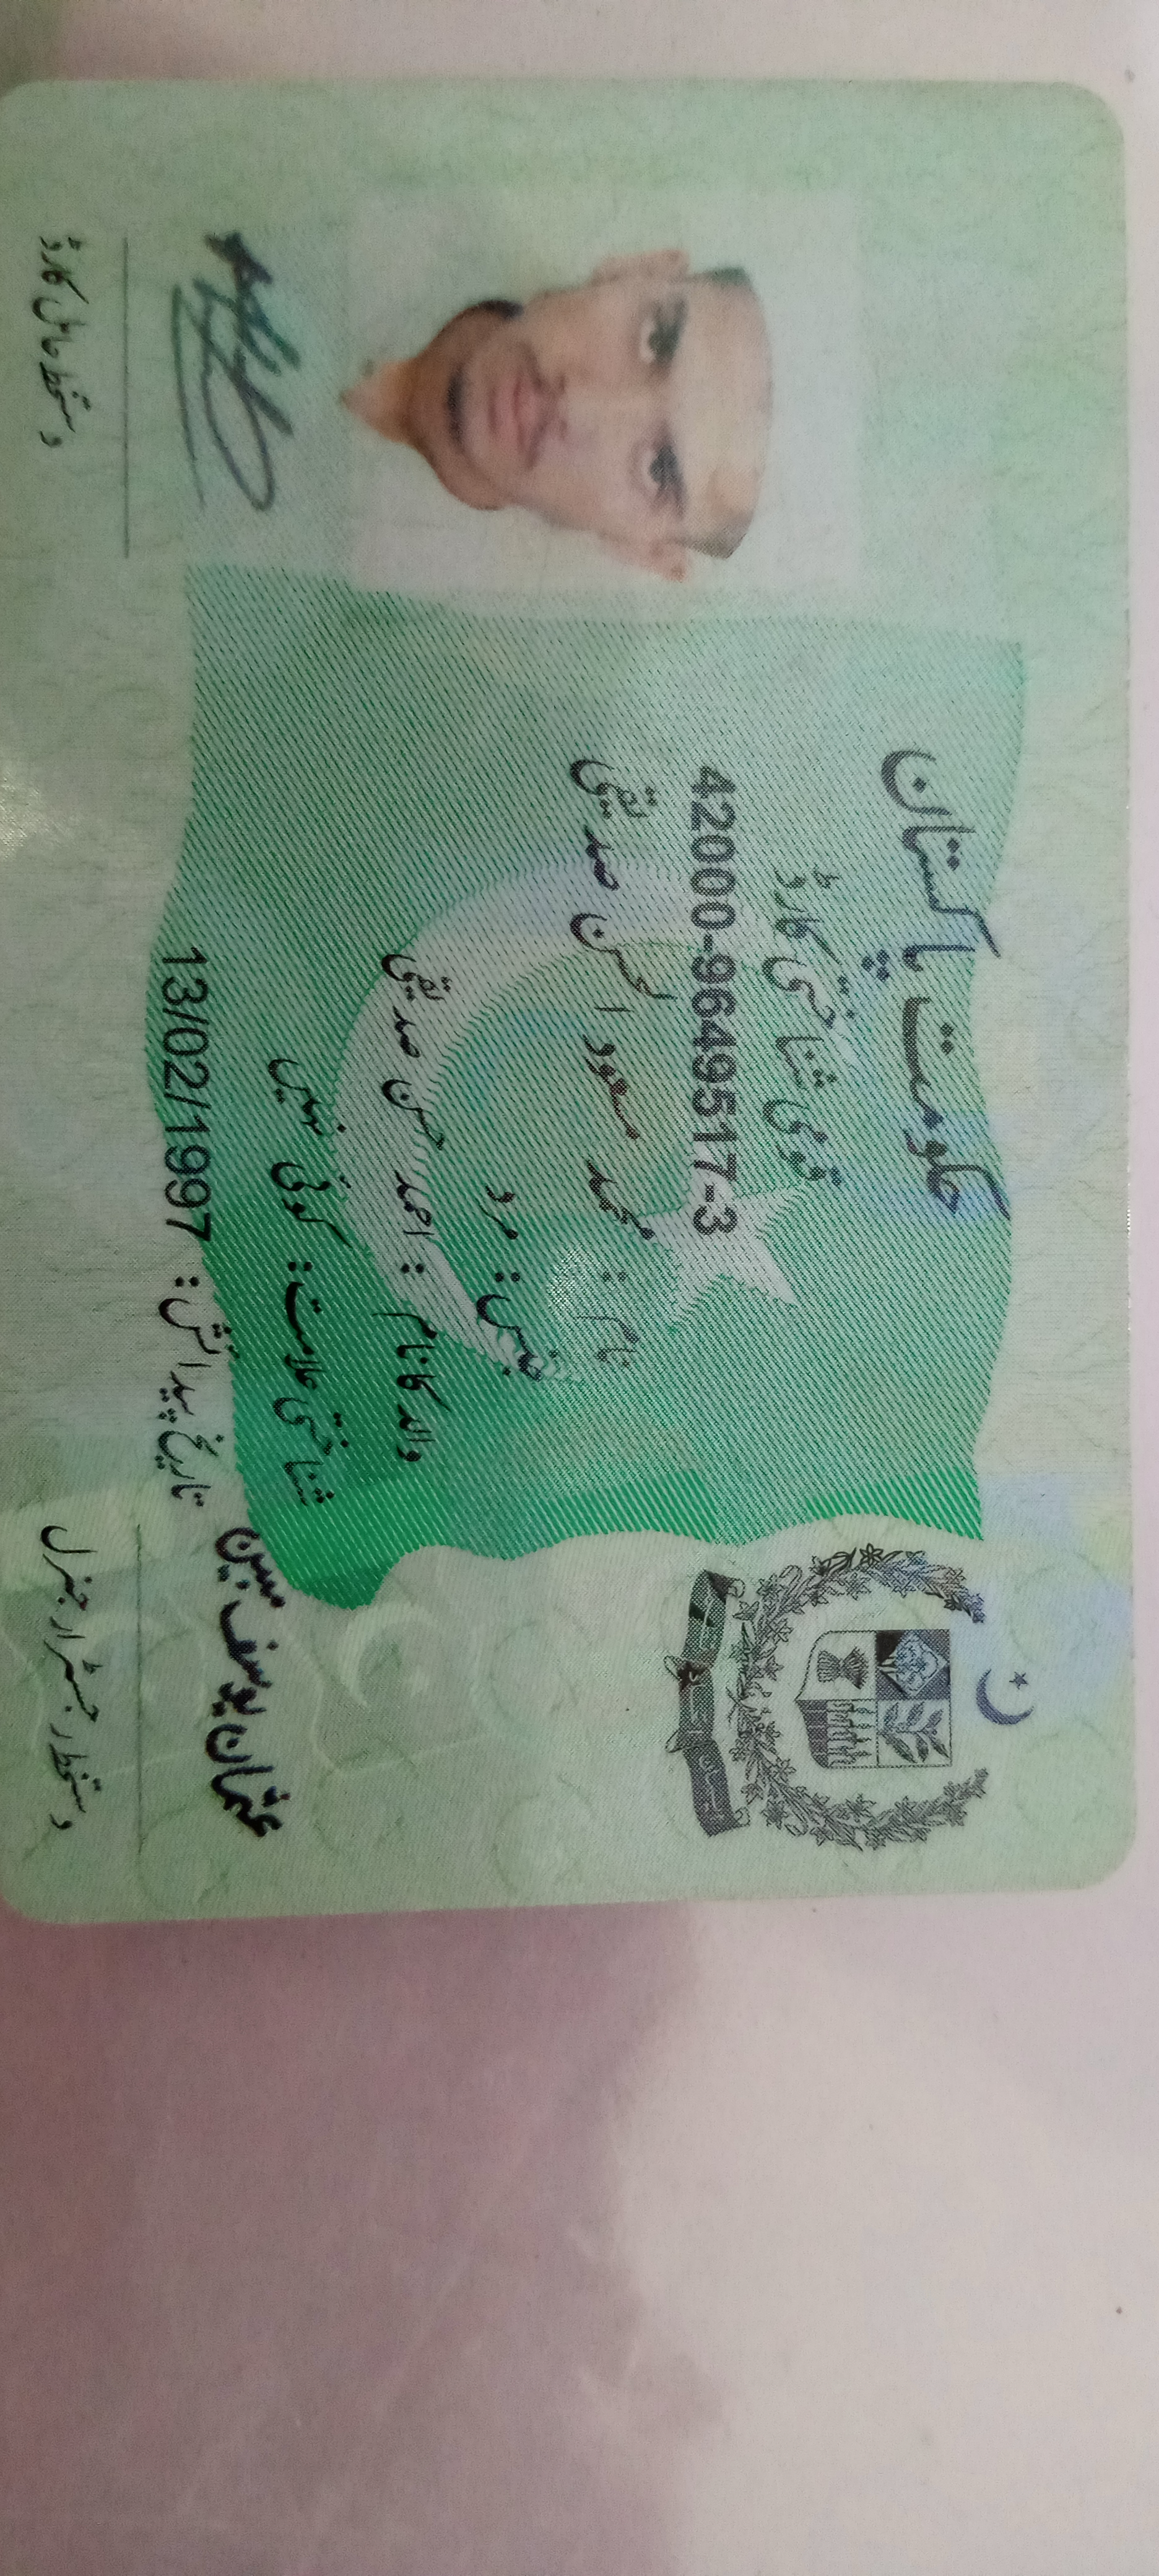 حکومت پاکستان
قومی شناختی کارڈ
42000-9649517-3
نام : محمد مسعود الحسن صدیقی
جنس : مرد
والد کا نام : احمد حسن صدیقی
شناختی علامت : کوئی نہیں
تاریخ پیدائش : 13/02/1997
عثمان یوسف مبین
دستخط رجسٹرار جنرل
دستخط حامل کارڈ